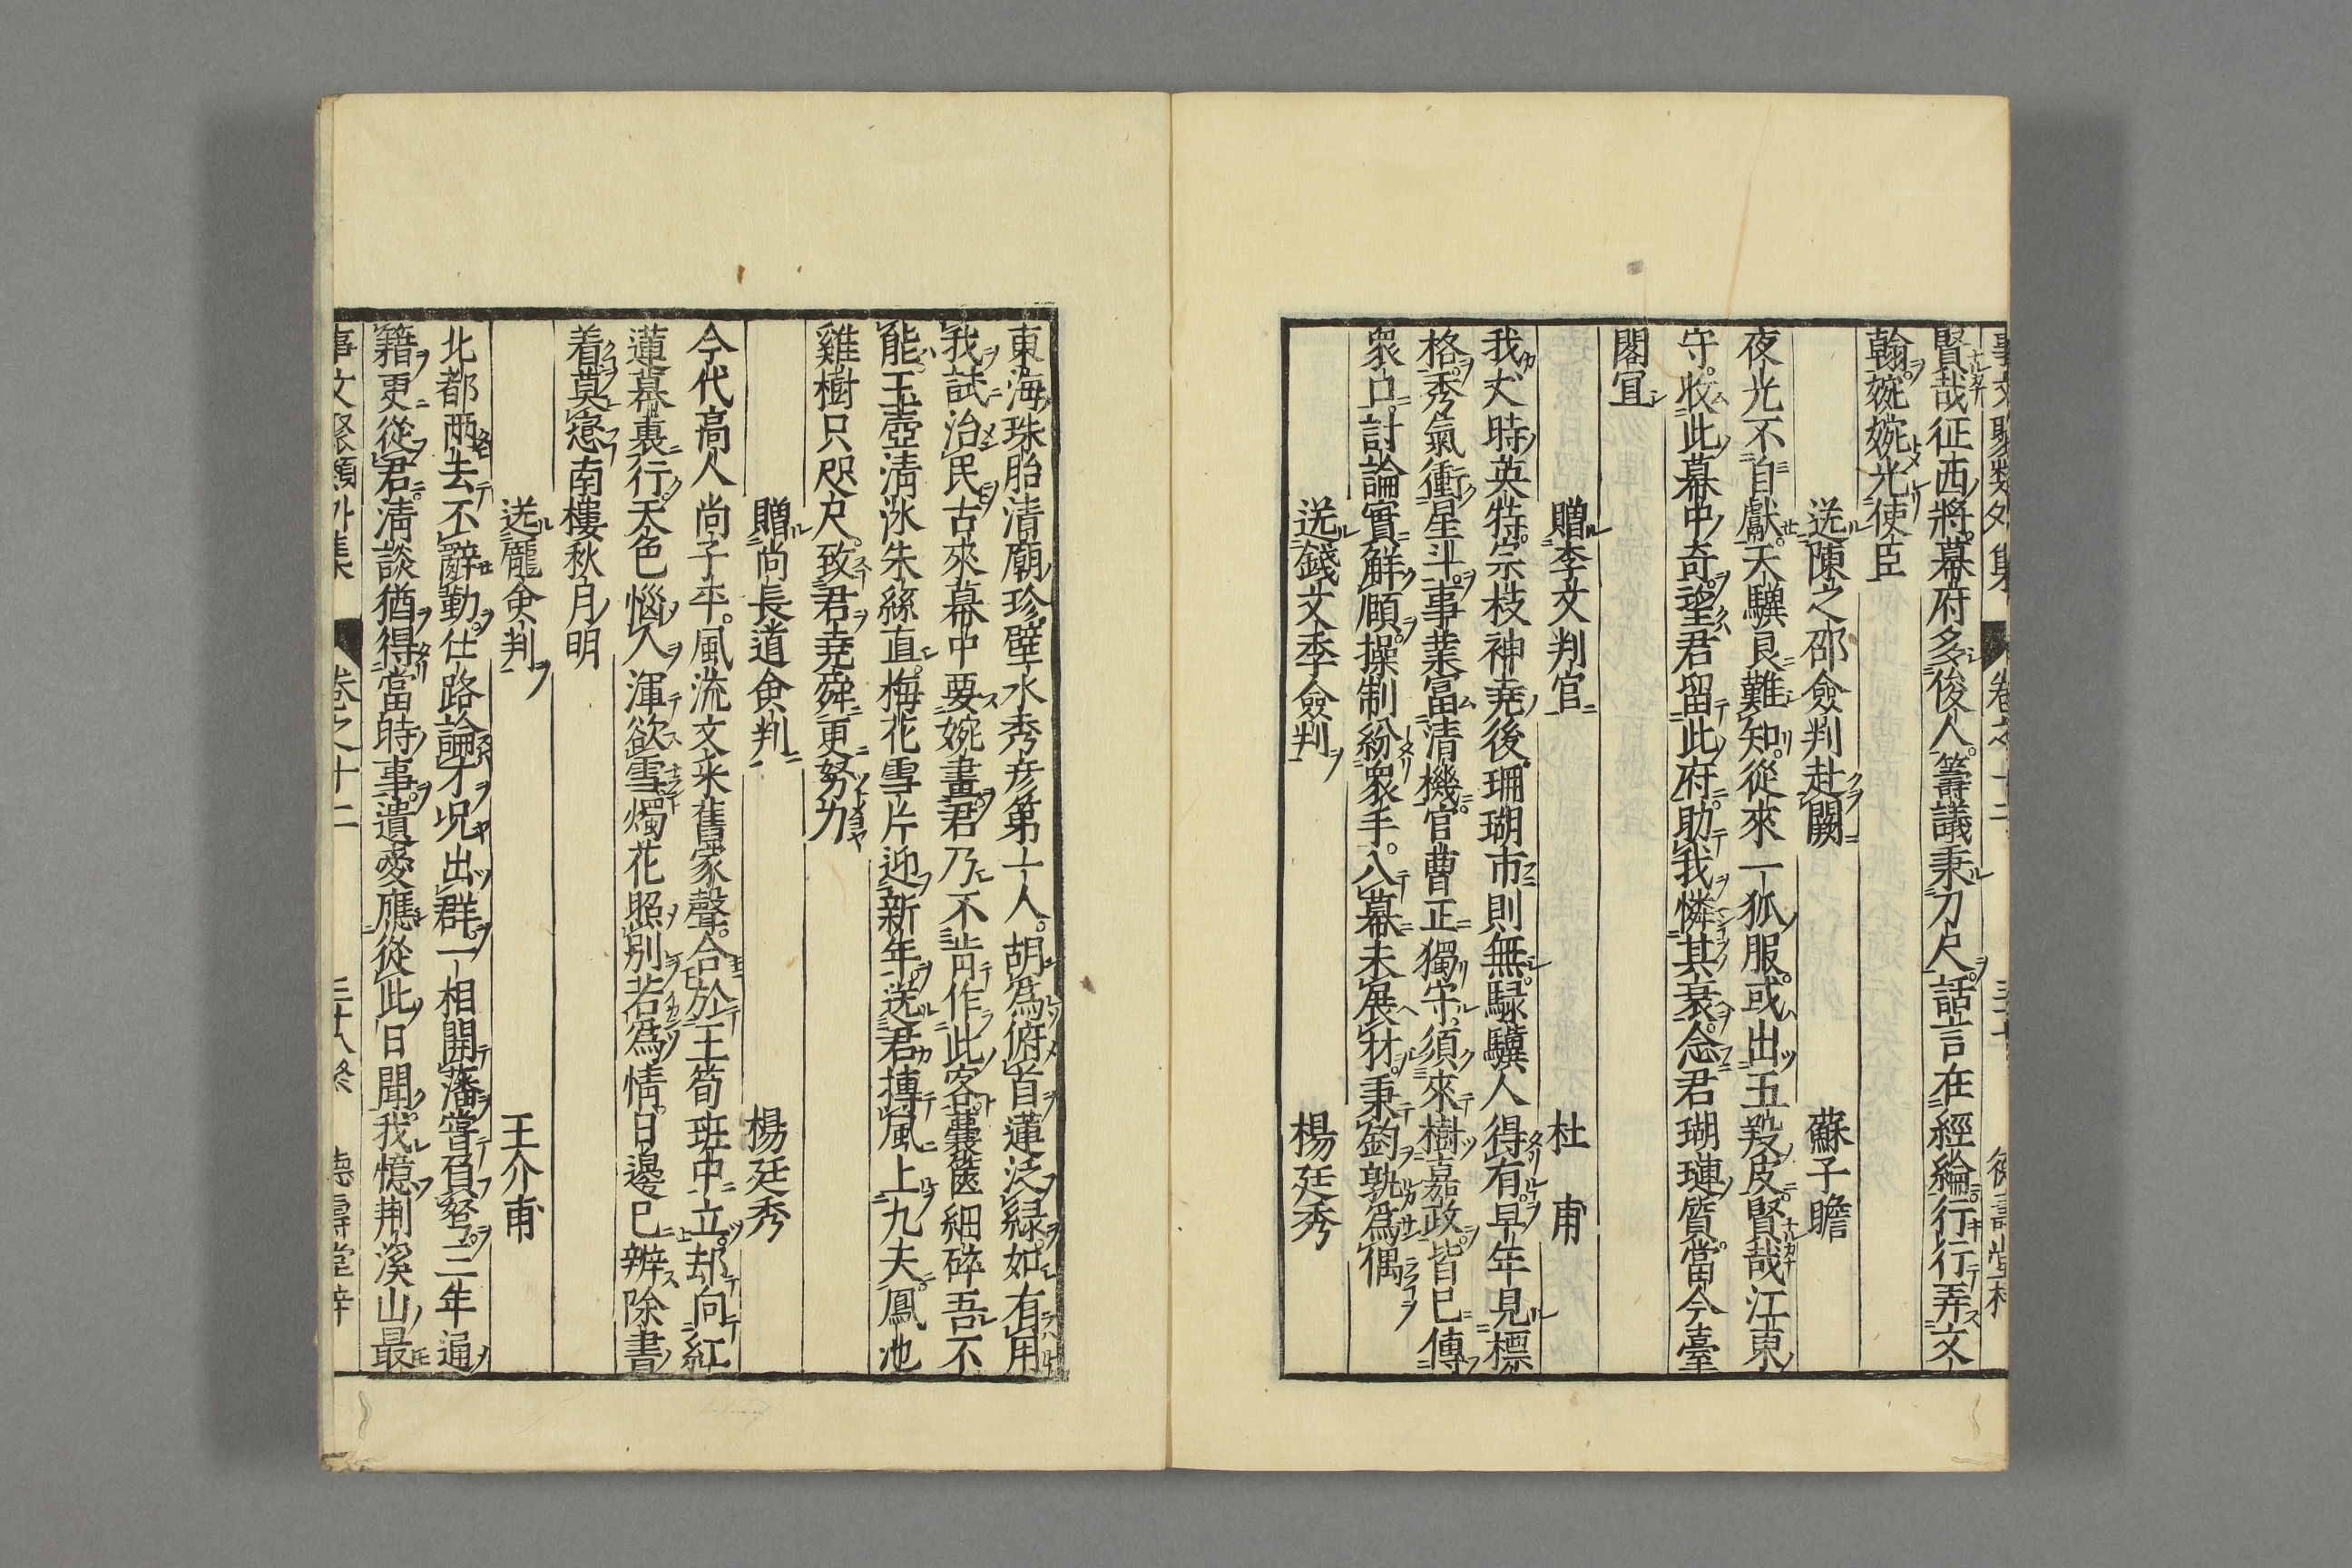 賢哉征西將。幕府多俊人。籌議秉刀尺。話言在經綸。行行弄文
翰。婉婉光使臣
送陳之邵僉判赴闕　蘇子瞻
夜光不自獻。天驥良難知。從來一狐服。或出五羖皮。賢哉江東
守。收此幕中奇。望君留此府。助我憐其衰。念君瑚璉質。當今臺
閣宜
贈李文判官　杜甫
我丈時英特。宗枝神堯後。珊瑚市則無。騄驥人得有。早年見標
格。秀氣衝星斗。事業富清機。官曹正獨守。須來樹嘉政。皆已傳
衆口。討論實鮮頗。操制紛衆手。入幕未展材。秉鈞孰為偶
送錢文季僉判　楊廷秀
東海珠胎清廟珍。璧水秀彥第一人。胡為俯首蓮泛緑。如有用
我試治民。古來幕中要婉畫。君乃不肯作此客。囊篋細碎吾不
能。玉壺清氷朱絲直。梅花雪片迎新年。送君摶風上九天。鳳池
雞樹只咫尺。致君堯舜更努力
贈尚長道僉判　楊廷秀
今代高人尚子平。風流文采舊家聲。合於玉筍班中立。却向紅
蓮幕裏行。天色惱人渾欲雪。燭花照別若為情。日邊已辨除書
着。莫戀南樓秋月明
送龐僉判　王介甫
北都兩去不辭勤。仕路論才況出群。一相開藩嘗負弩。三年通
籍更從君。清談猶得當時事。遺愛應從此日聞。我憶荆溪山最
事文聚類外集　卷之十二　三十八終　德壽堂梓